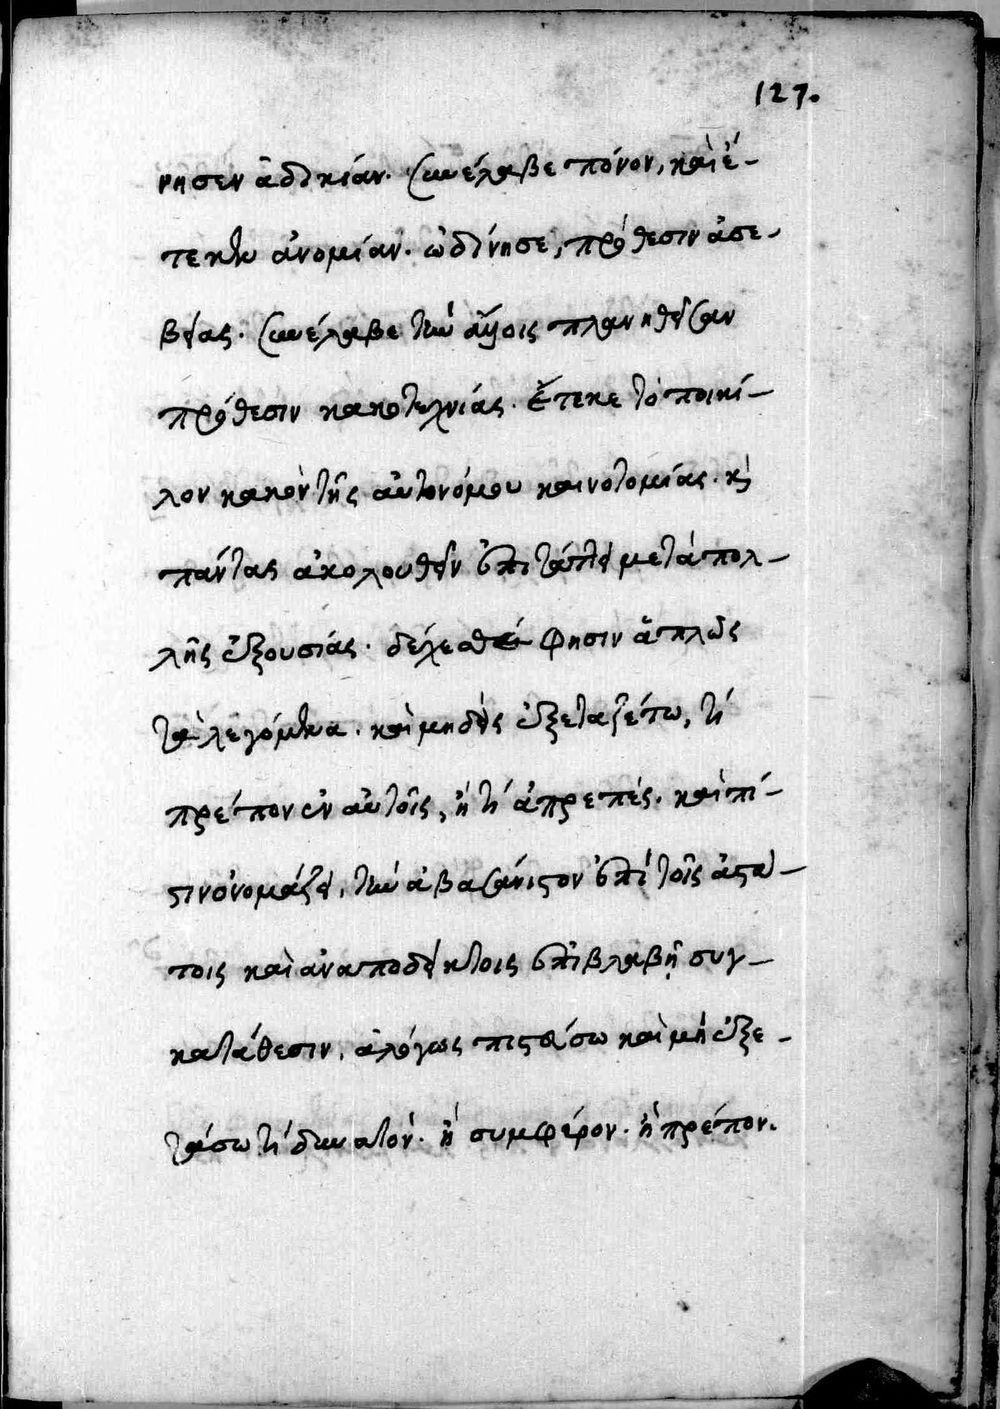 127.
νησεν ἀδικίαν. συνέλαβε πόνον, καὶ ἔ-
τεκεν ἀνομίαν. ὠδίνησε, πρόθεσιν ἀσε-
βείας. συνέλαβε τὴν πλανηθεῖσαν
πρόθεσιν κακοτεχνίας. ἔτεκε τὸ ποικί-
λον κακὸν τῆς αὐτονόμου καινοτομίας. κὶ
πάντας ἀκολουθεῖν ἐπιτάττει μετὰ πολ-
λῆς ἐξουσίας. δέχεσθαι φησιν ἁπλῶς
τὰ λεγόμενα. καὶ μηδεὶς ἐξεταζέτω, τί
πρέπον ἐν αὐτοῖς, ἢ τί ἀπρεπές. καὶ πί-
στιν ὀνομάζει, τὴν ἀβασάνιστον ἐπὶ τοῖς ἀστά-
τοις καὶ ἀναποδείκτοις ἐπιβλαβῆ συγ-
κατάθεσιν. ἀλόγως πιστεύσω καὶ μὴ ἐξε-
τάσω τί δυνατόν. ἢ συμφέρον. ἢ πρέπον.